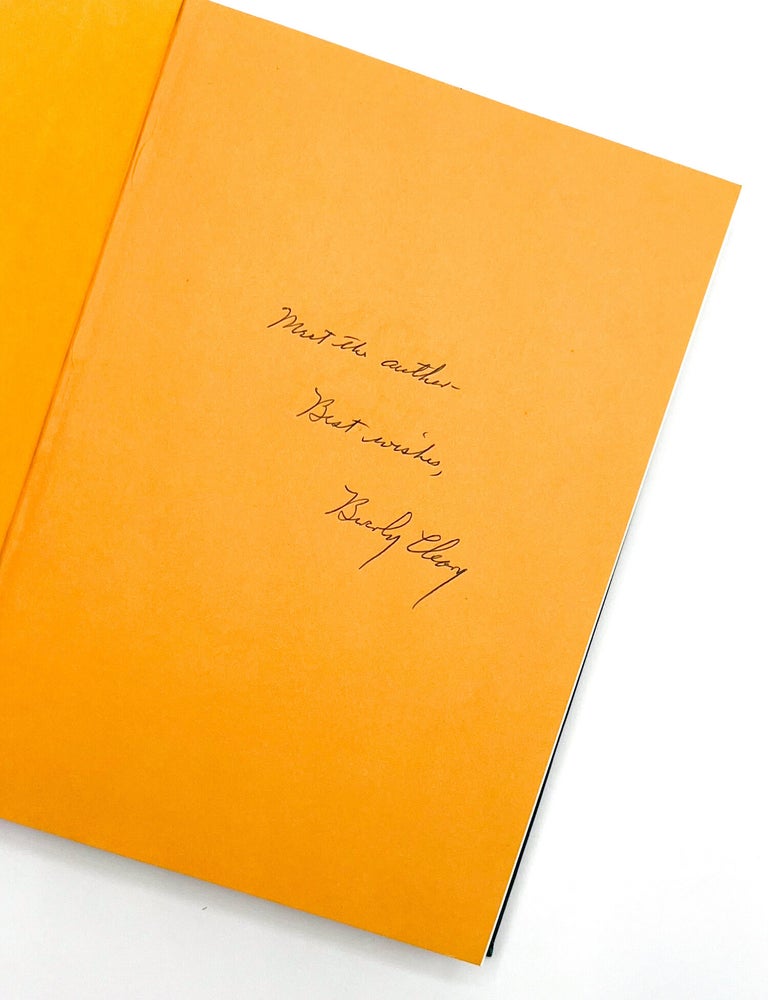 Meet the author-
Best wishes,
Beverly Cleary